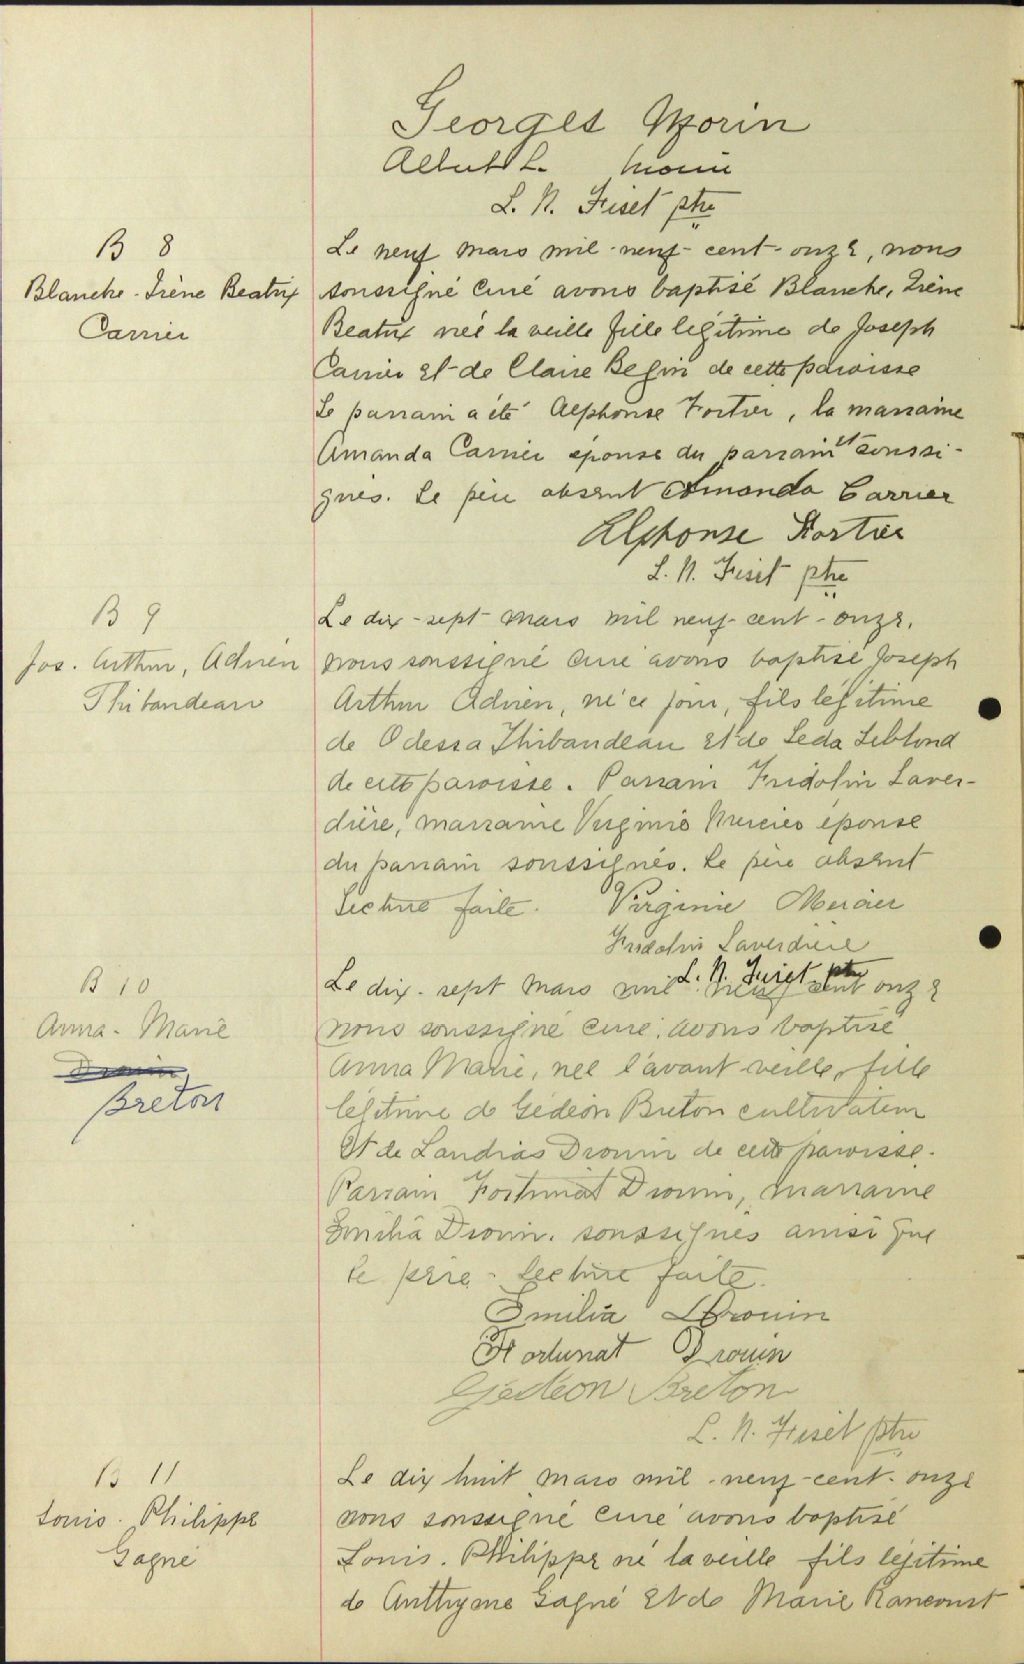 Georges Morin
Albert L. Morin
L. N. Fiset ptre
B 8
Blanche-Irène Beatrix
Carrier
Le neuf mars mil-neuf-cent-onze, nous
soussigné curé avons baptisé Blanche, Irène
Beatrix née la veille fille légitime de Joseph
Carrier et de Claire Begin de cette paroisse
Le parrain a été Alphonse Fortier, la marraine
Amanda Carrier épouse du parrain et soussi-
gnés. Le père absent Amanda Carrier
Alphonse Fortier
L. N. Fiset ptre
B 9
Jos. Arthur, Adrien
Thibaudeau
Le dix-sept mars mil neuf-cent-onze,
nous soussigné curé avons baptisé Joseph
Arthur Adrien, né ce jour, fils légitime
de Odessa Thibaudeau et de Leda Leblond
de cette paroisse. Parrain Fridolin Laver-
dière, marraine Virginie Mercier épouse
du parrain soussignés. Le père absent
Lecture faite. Virginie Mercier
Fridolin Laverdière
L. N. Fiset ptre
B 10
Anna-Marie
Drouin
Breton
Le dix-sept mars mil neuf cent onze
nous soussigné curé, avons baptisé
Anna Marie, née l'avant veille, fille
légitime de Gédéon Breton cultivateur
et de Landrias Drouin de cette paroisse.
Parrain Fortunat Drouin, marraine
Emilia Drouin. soussignés ainsi que
le père - Lecture faite.
Emilia Drouin
Fortunat Drouin
Gédéon Breton
L. N. Fiset ptre
B 11
Louis-Philippe
Gagné
Le dix huit mars mil-neuf-cent-onze
nous soussigné curé avons baptisé
Louis-Philippe né la veille fils légitime
de Anthyme Gagné et de Marie Rancourt